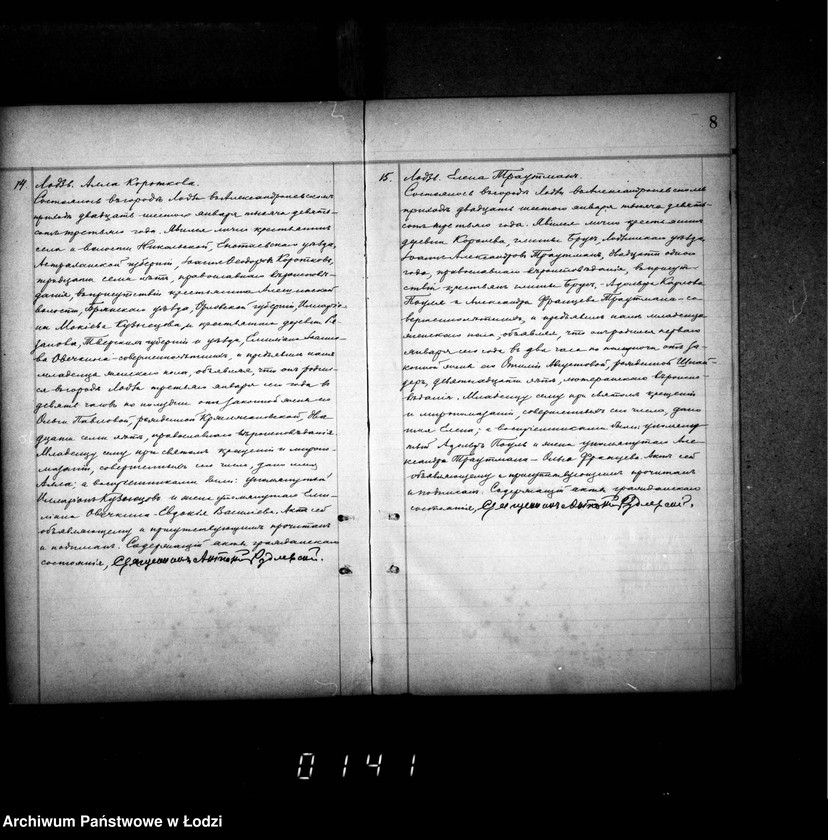 8
14. Лодзь. Алла Короткова.
Состоялось въ городѣ Лодзи въ Александроневскомъ
приходѣ двадцать шестого января тысяча девять-
сотъ третьяго года. Явился лично крестьянинъ
села и волости Никольской, Енотаевскаго уѣзда,
Астраханской губерніи, Ѳеодоровъ Коротковъ,
тридцати семи лѣтъ, православнаго вѣроисповѣ-
данія, въ присутствіи крестьянина
волости, Брянскаго уѣзда, Орловской губерніи, Илларіо-
на Мокіева Кузнецова, и крестьянина деревни
Тверской губерніи и уѣзда, Емиліана
ва Овечкина - совершеннолѣтнихъ, и предъявилъ намъ
младенца женскаго пола, объявляя, что она родил-
ся въ городѣ Лодзи третьяго января сего года въ
девять часовъ по полудни отъ законной жены его
Ольги Павловой, рожденной двад-
цати семи лѣтъ, православнаго вѣроисповѣданія.
Младенцу сему при святомъ крещеніи и миропо-
мазаніи, совершенныхъ сего числа, дано имя
Алла; а воспріемниками были: упомянутый
Илларіонъ Кузнецовъ и жена упомянутаго Еми-
ліана Овечкина - Евдокія Васильева. Актъ сей
объявляющему и присутствующимъ прочитанъ
и подписанъ. Содержащій акты гражданскаго
состоянія, Священникъ Антоній Рудлевскій.
15. Лодзь. Елена Траутманъ.
Состоялось въ городѣ Лодзи въ Александроневскомъ
приходѣ двадцать шестого января тысяча девять-
сотъ третьяго года. Явился лично крестьянинъ
деревни гмины Брусъ, Лодзинскаго уѣзда,
Александровъ Траутманъ, двадцати одного
года, православнаго вѣроисповѣданія, въ присут-
ствіи крестьянъ гмины Брусъ - Адольфа Карлова
Пауля и Александра Францева Траутмана - со-
вершеннолѣтнихъ, и предъявилъ намъ младенца
женскаго пола, объявляя, что онъ родился перваго
января сего года въ два часа по полуночи отъ за-
конной жены его Отиліи рожденной
девятнадцати лѣтъ, лютеранскаго вѣроиспо-
вѣданія. Младенцу сему при святомъ крещеніи
и миропомазаніи, совершенныхъ сего числа, дано
имя Елена; а воспріемниками были: упомяну-
тый Адольфъ Пауль и жена упомянутаго Але-
ксандра Траутмана - Ольга Францева. Актъ сей
объявляющему и присутствующимъ прочитанъ
и подписанъ. Содержащій акты гражданскаго
состоянія, Священникъ Антоній Рудлевскій.
0141
Archiwum Państwowe w Łodzi